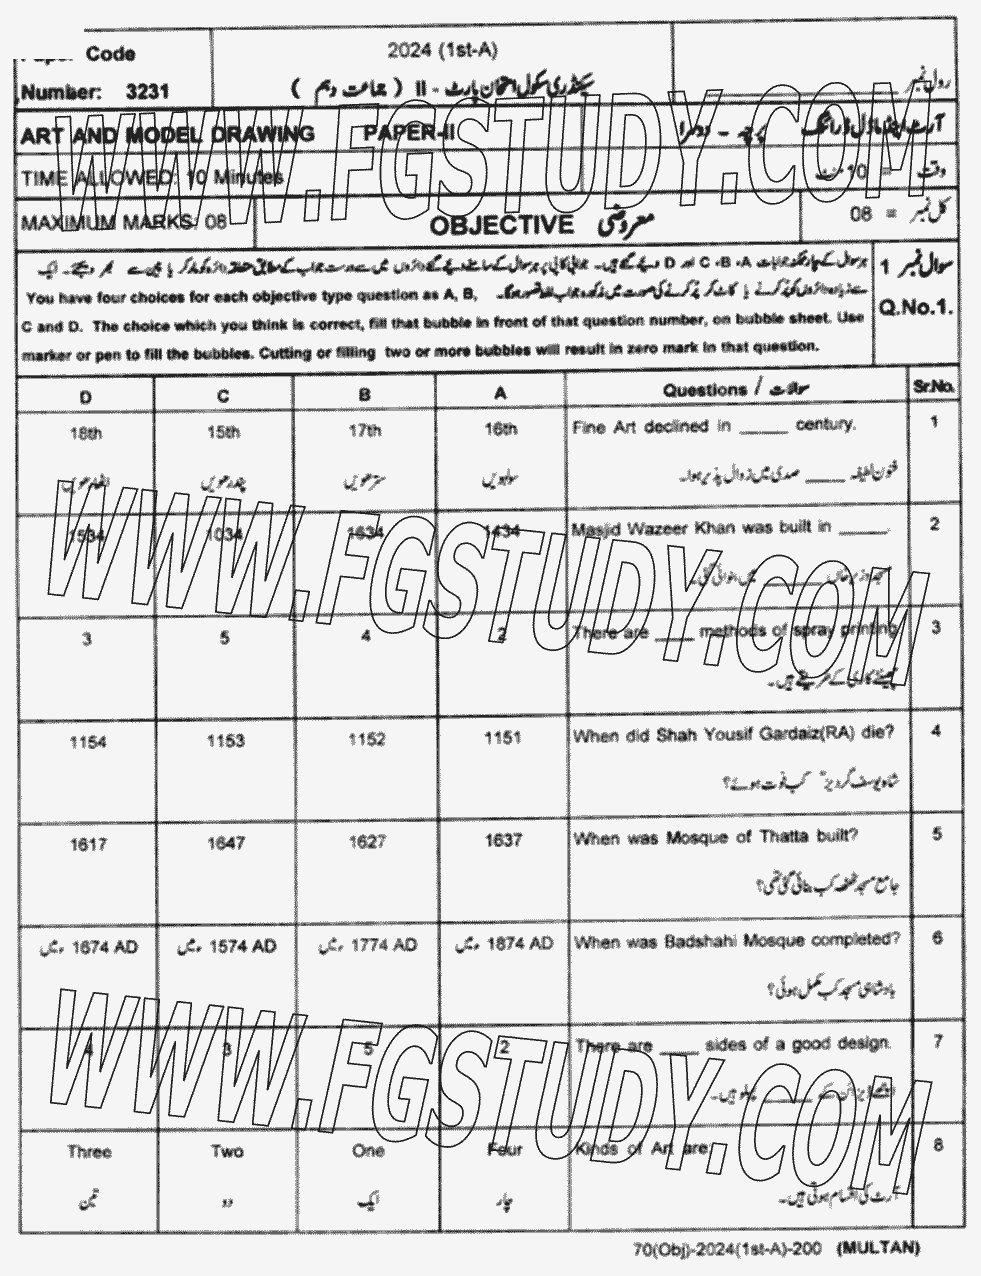 Code
2024 (1st-A)
رول نمبر
Number: 3231
سیکنڈری سکول امتحان پارٹ - II ( جماعت دہم )
ART AND MODEL DRAWING PAPER-II
آرٹ اینڈ ماڈل ڈرائنگ پرچہ - دوسرا
TIME ALLOWED: 10 Minutes
وقت = 10 منٹ
MAXIMUM MARKS: 08
OBJECTIVE معروضی
کل نمبر = 08
سوال نمبر 1
Q.No.1.
You have four choices for each objective type question as A, B,
C and D. The choice which you think is correct, fill that bubble in front of that question number, on bubble sheet. Use
marker or pen to fill the bubbles. Cutting or filling two or more bubbles will result in zero mark in that question.
D C B A Questions / سوالات Sr.No.
18th 15th 17th 16th Fine Art declined in _____ century. 1
اٹھارھویں پندرھویں سترھویں سولہویں فنون لطیفہ ____ صدی میں زوال پذیر ہوا۔
1534 1034 1634 1434 Masjid Wazeer Khan was built in _____. 2
مسجد وزیر خاں ______ میں بنوائی گئی۔
3 5 4 2 There are ____ methods of spray printing. 3
چھینٹے کاری کے طریقے ہیں۔
1154 1153 1152 1151 When did Shah Yousif Gardaiz(RA) die? 4
شاہ یوسف گردیزؒ کب فوت ہوئے؟
1617 1647 1627 1637 When was Mosque of Thatta built? 5
جامع مسجد ٹھٹھہ کب بنائی گئی تھی؟
1674 AD ء میں 1574 AD ء میں 1774 AD ء میں 1874 AD ء میں When was Badshahi Mosque completed? 6
بادشاہی مسجد کب مکمل ہوئی؟
4 3 5 2 There are ____ sides of a good design. 7
اچھے ڈیزائن کے _____ پہلو ہیں۔
Three Two One Four Kinds of Art are: 8
تین دو ایک چار آرٹ کی اقسام ہوتی ہیں۔
70(Obj)-2024(1st-A)-200 (MULTAN)
WWW.FGSTUDY.COM
WWW.FGSTUDY.COM
WWW.FGSTUDY.COM